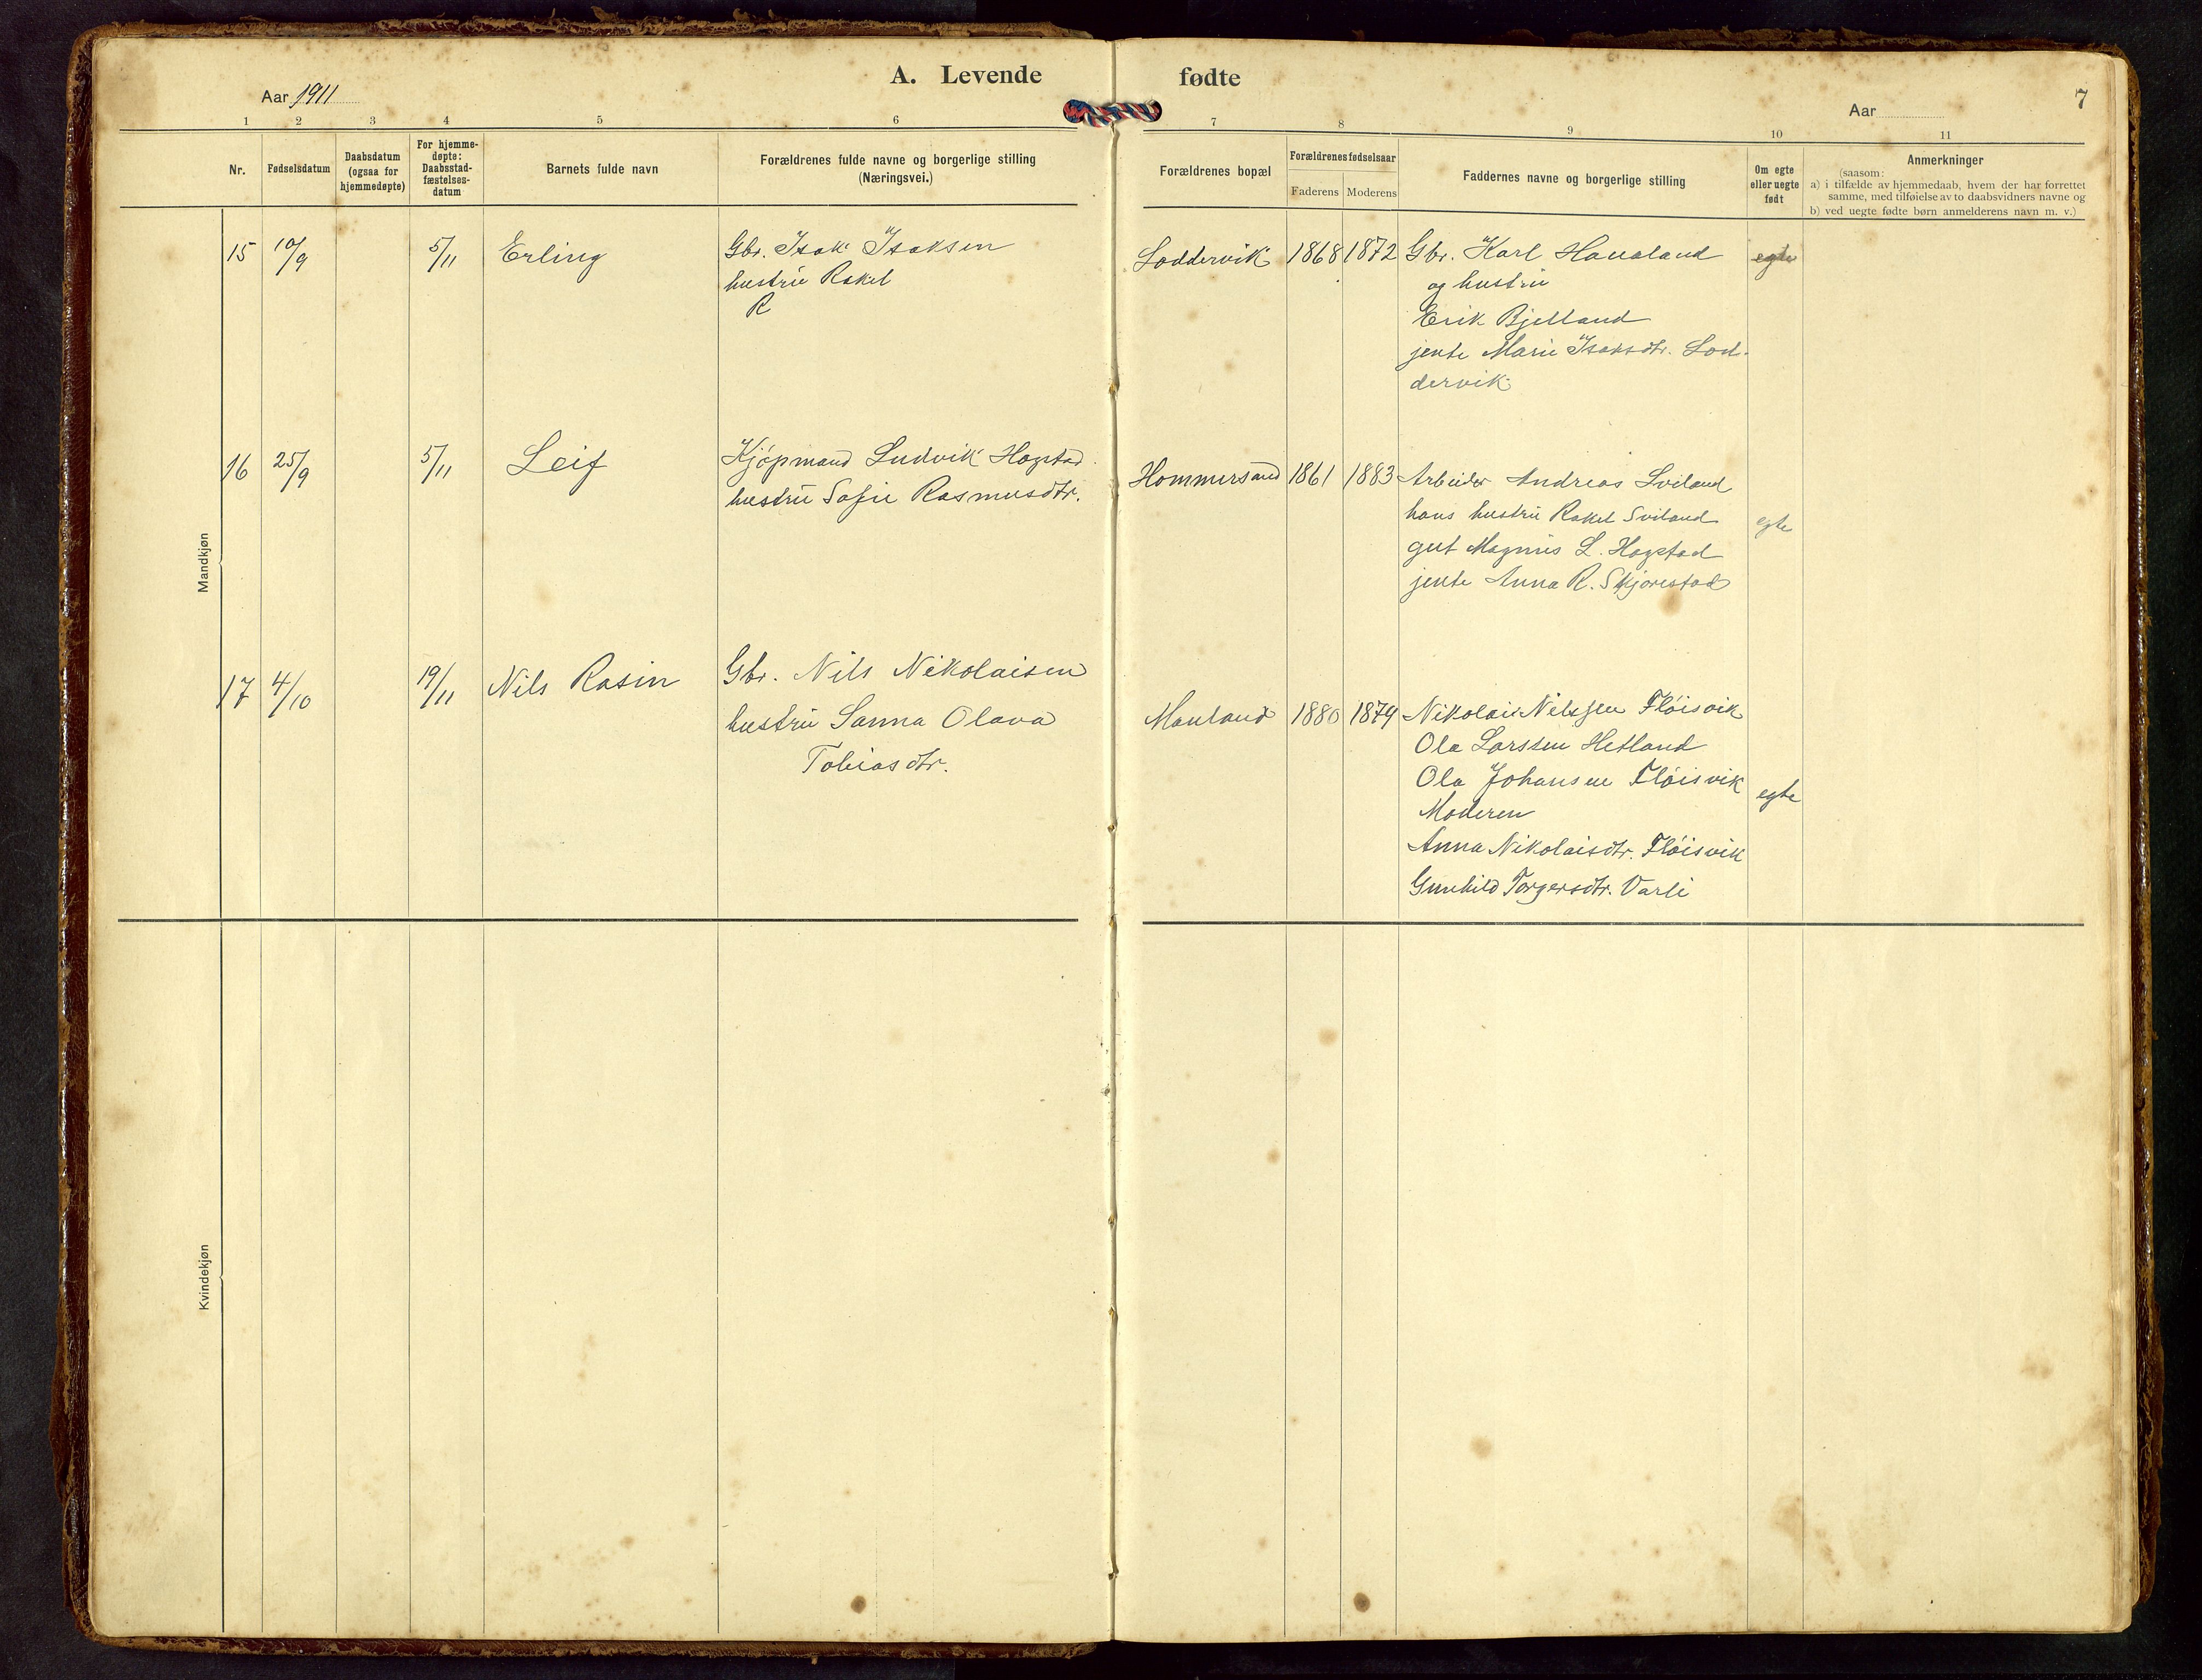 A. Levende fødte
Aar 1911
Aar
7
1 2 3 4 5 6 7 8 9 10 11
Nr.
Fødselsdatum
Daabsdatum
(ogsaa for
hjemmedøpte)
For hjemme-
døpte:
Daabsstad-
fæstelses-
datum
Barnets fulde navn
Forældrenes fulde navne og borgerlige stilling
(Næringsvei.)
Forældrenes bopæl
Forældrenes fødselsaar
Faderens Moderens
Faddernes navne og borgerlige stilling
Om egte
eller uegte
født
Anmerkninger
(saasom:
a) i tilfælde av hjemmedaab, hvem der har forrettet
samme, med tilføielse av to daabsvidners navne og
b) ved uegte fødte børn anmelderens navn m. v.)
Mandkjøn
15 10/9 5/11 Erling
Gbr. Isak Isaksen
hustru Rakel
R
Loddervik 1868 1872
Gbr. Karl Haualand
og hustru
Erik Bjelland
jente Marie Isaksdtr. Lod-
dervik
egte
16 25/9 5/11 Leif
Kjøpmand Ludvik Hogstad
hustru Sofie Rasmusdtr.
Hommersand 1861 1883
Arbeider Andreas Sviland
hans hustru Rakel Sviland
gut Magnus L. Hogstad
jente Anna R. Skjørestad
egte
17 4/10 19/11 Nils Rasin
Gbr. Nils Nikolaisen
hustru Sanna Olava
Tobiasdtr.
Mauland 1880 1879
Nikolai Nilssen Fløisvik
Ola Larssen Hetland
Ola Johansen Fløisvik
Moderen
Anna Nikolaisdtr. Fløisvik
Gunhild Torgersdtr. Varli
egte
Kvindekjøn